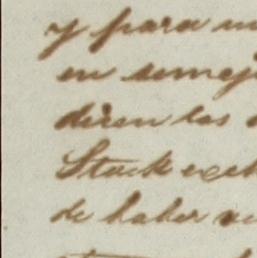 y para
en semej
diren las
Stock exch
de haber